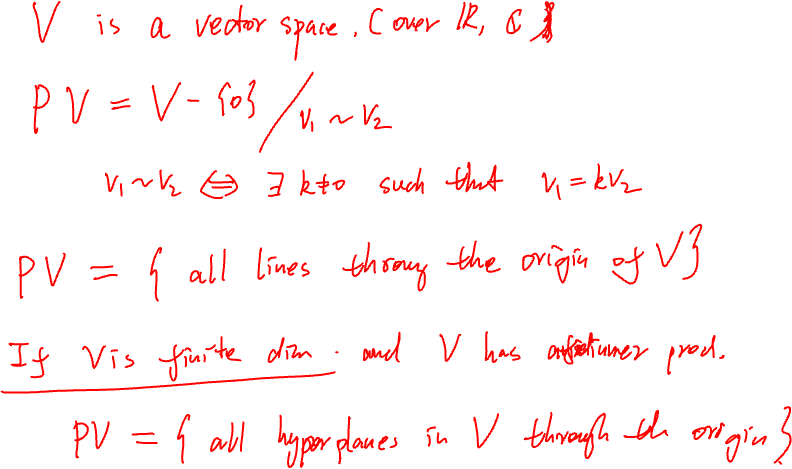 V is a vector space. (over ℝ, ℂ)
PV = V - {0} / v₁ ~ v₂
v₁ ~ v₂ ⇔ ∃ k≠0 such that v₁ = kv₂
PV = { all lines throug the origin of V}
If V is finite dim. and V has inner prod.
PV = { all hyperplanes in V through th origin}